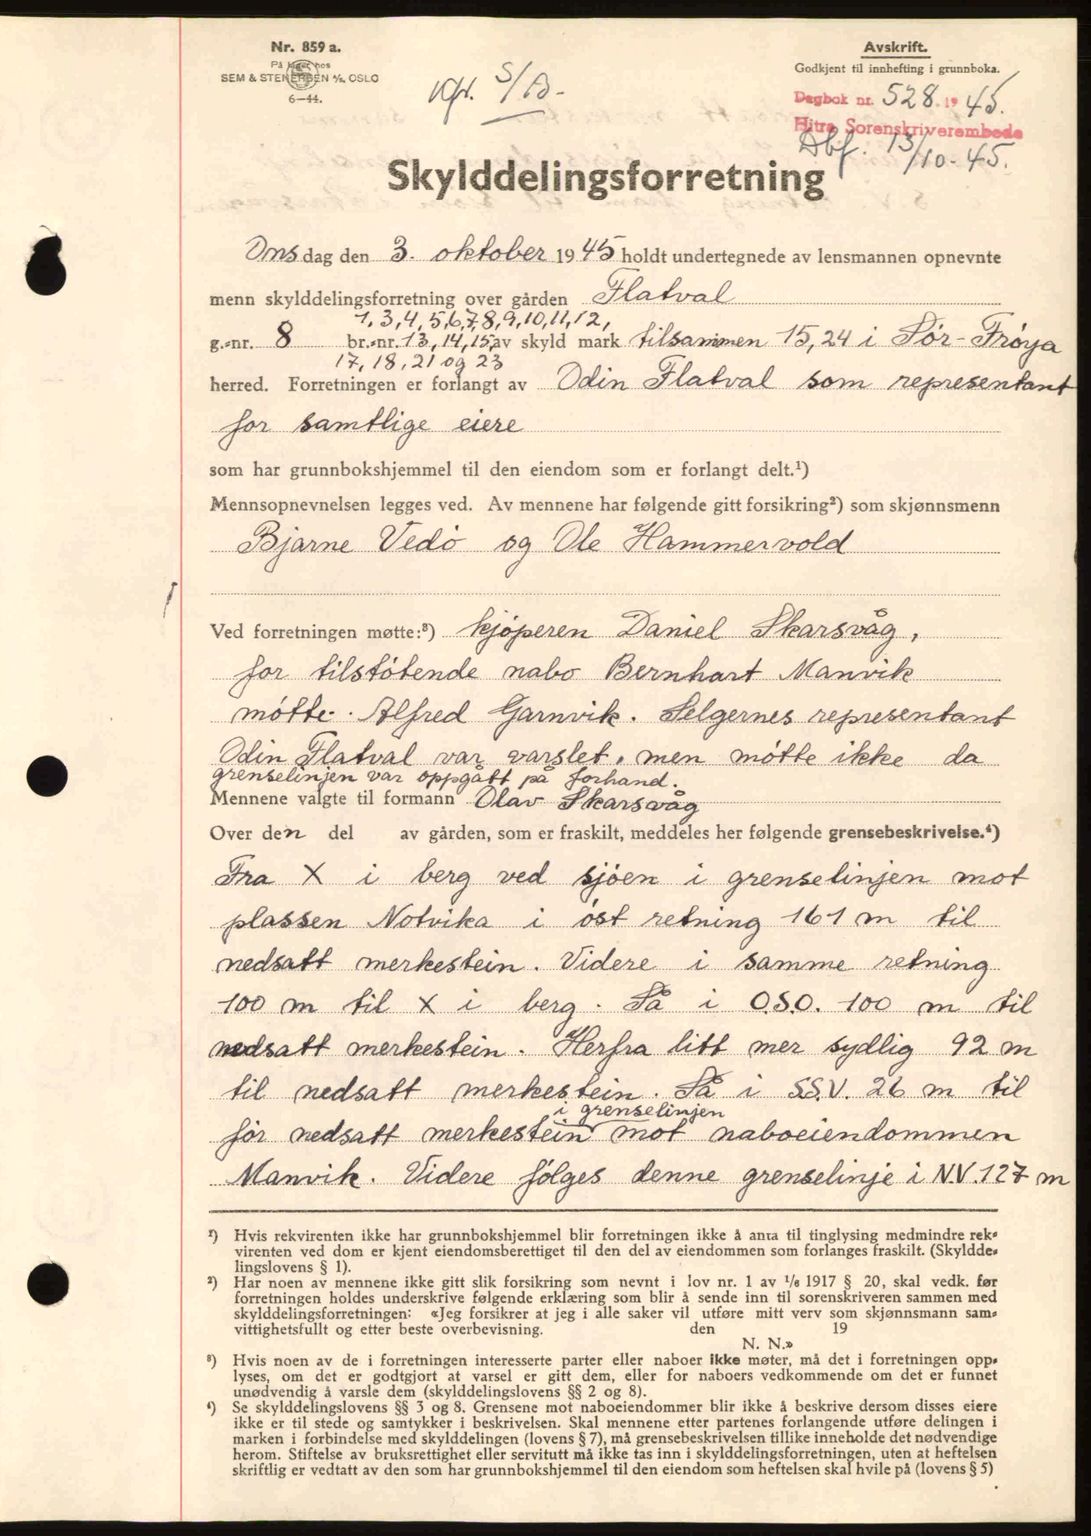 Nr. 859 a.
På lager hos
SEM & STENERSEN A/S, OSLO
6—44.
Avskrift.
Godkjent til innhefting i grunnboka.
Dagbok nr. 528. 1945.
Hitra Sorenskriverembede
Dbf. 13/10-45.
Skylddelingsforretning
Onsdag den 3. oktober 1945 holdt undertegnede av lensmannen opnevnte
menn skylddelingsforretning over gården Flatval
1, 3, 4, 5, 6, 7, 8, 9, 10, 11, 12,
g.-nr. 8 br.-nr. 13, 14, 15, av skyld mark tilsammen 15,24 i Sør-Frøya
17, 18, 21 og 23
herred. Forretningen er forlangt av Odin Flatval som representant
for samtlige eiere
som har grunnbokshjemmel til den eiendom som er forlangt delt.¹)
Mennsopnevnelsen legges ved. Av mennene har følgende gitt forsikring²) som skjønnsmenn
Bjarne Vedø og Ole Hammervold
Ved forretningen møtte:³) kjøperen Daniel Skarsvåg,
for tilstøtende nabo Bernhart Manvik
møtte. Alfred Garnvik. Selgernes representant
Odin Flatval var varslet, men møtte ikke da
grenselinjen var oppgått på forhand.
Mennene valgte til formann Olav Skarsvåg
Over den del av gården, som er fraskilt, meddeles her følgende grensebeskrivelse.⁴)
Fra X i berg ved sjøen i grenselinjen mot
plassen Notvika i øst retning 161 m til
nedsatt merkestein. Videre i samme retning
100 m til X i berg. Så i O.S.O. 100 m til
nedsatt merkestein. Herfra litt mer sydlig 92 m
til nedsatt merkestein. Så i S.S.V. 26 m til
i grenselinjen
før nedsatt merkestein mot naboeiendommen
Manvik. Videre følges denne grenselinje i N.V. 127 m
¹) Hvis rekvirenten ikke har grunnbokshjemmel blir forretningen ikke å anta til tinglysing medmindre rek-
virenten ved dom er kjent eiendomsberettiget til den del av eiendommen som forlanges fraskilt. (Skyldde-
lingslovens § 1).
²) Har noen av mennene ikke gitt slik forsikring som nevnt i lov nr. 1 av 1/6 1917 § 20, skal vedk. før
forretningen holdes underskrive følgende erklæring som blir å sende inn til sorenskriveren sammen med
skylddelingsforretningen: «Jeg forsikrer at jeg i alle saker vil utføre mitt verv som skjønnsmann sam-
vittighetsfullt og etter beste overbevisning. den 19
N. N.»
³) Hvis noen av de i forretningen interesserte parter eller naboer ikke møter, må det i forretningen opp-
lyses, om det er godtgjort at varsel er gitt dem, eller for naboers vedkommende om det er funnet
unødvendig å varsle dem (skylddelingslovens §§ 2 og 8).
⁴) Se skylddelingslovens §§ 3 og 8. Grensene mot naboeiendommer blir ikke å beskrive dersom disses eiere
ikke er til stede og samtykker i beskrivelsen. Skal mennene etter partenes forlangende utføre delingen i
marken i forbindelse med skylddelingen (lovens § 7), må grensebeskrivelsen tillike inneholde det nødvendige
herom. Stiftelse av bruksrettighet eller servitutt må ikke tas inn i skylddelingsforretningen, uten at heftelsen
skriftlig er vedtatt av den som har grunnbokshjemmel til den eiendom som heftelsen skal hvile på (lovens § 5)